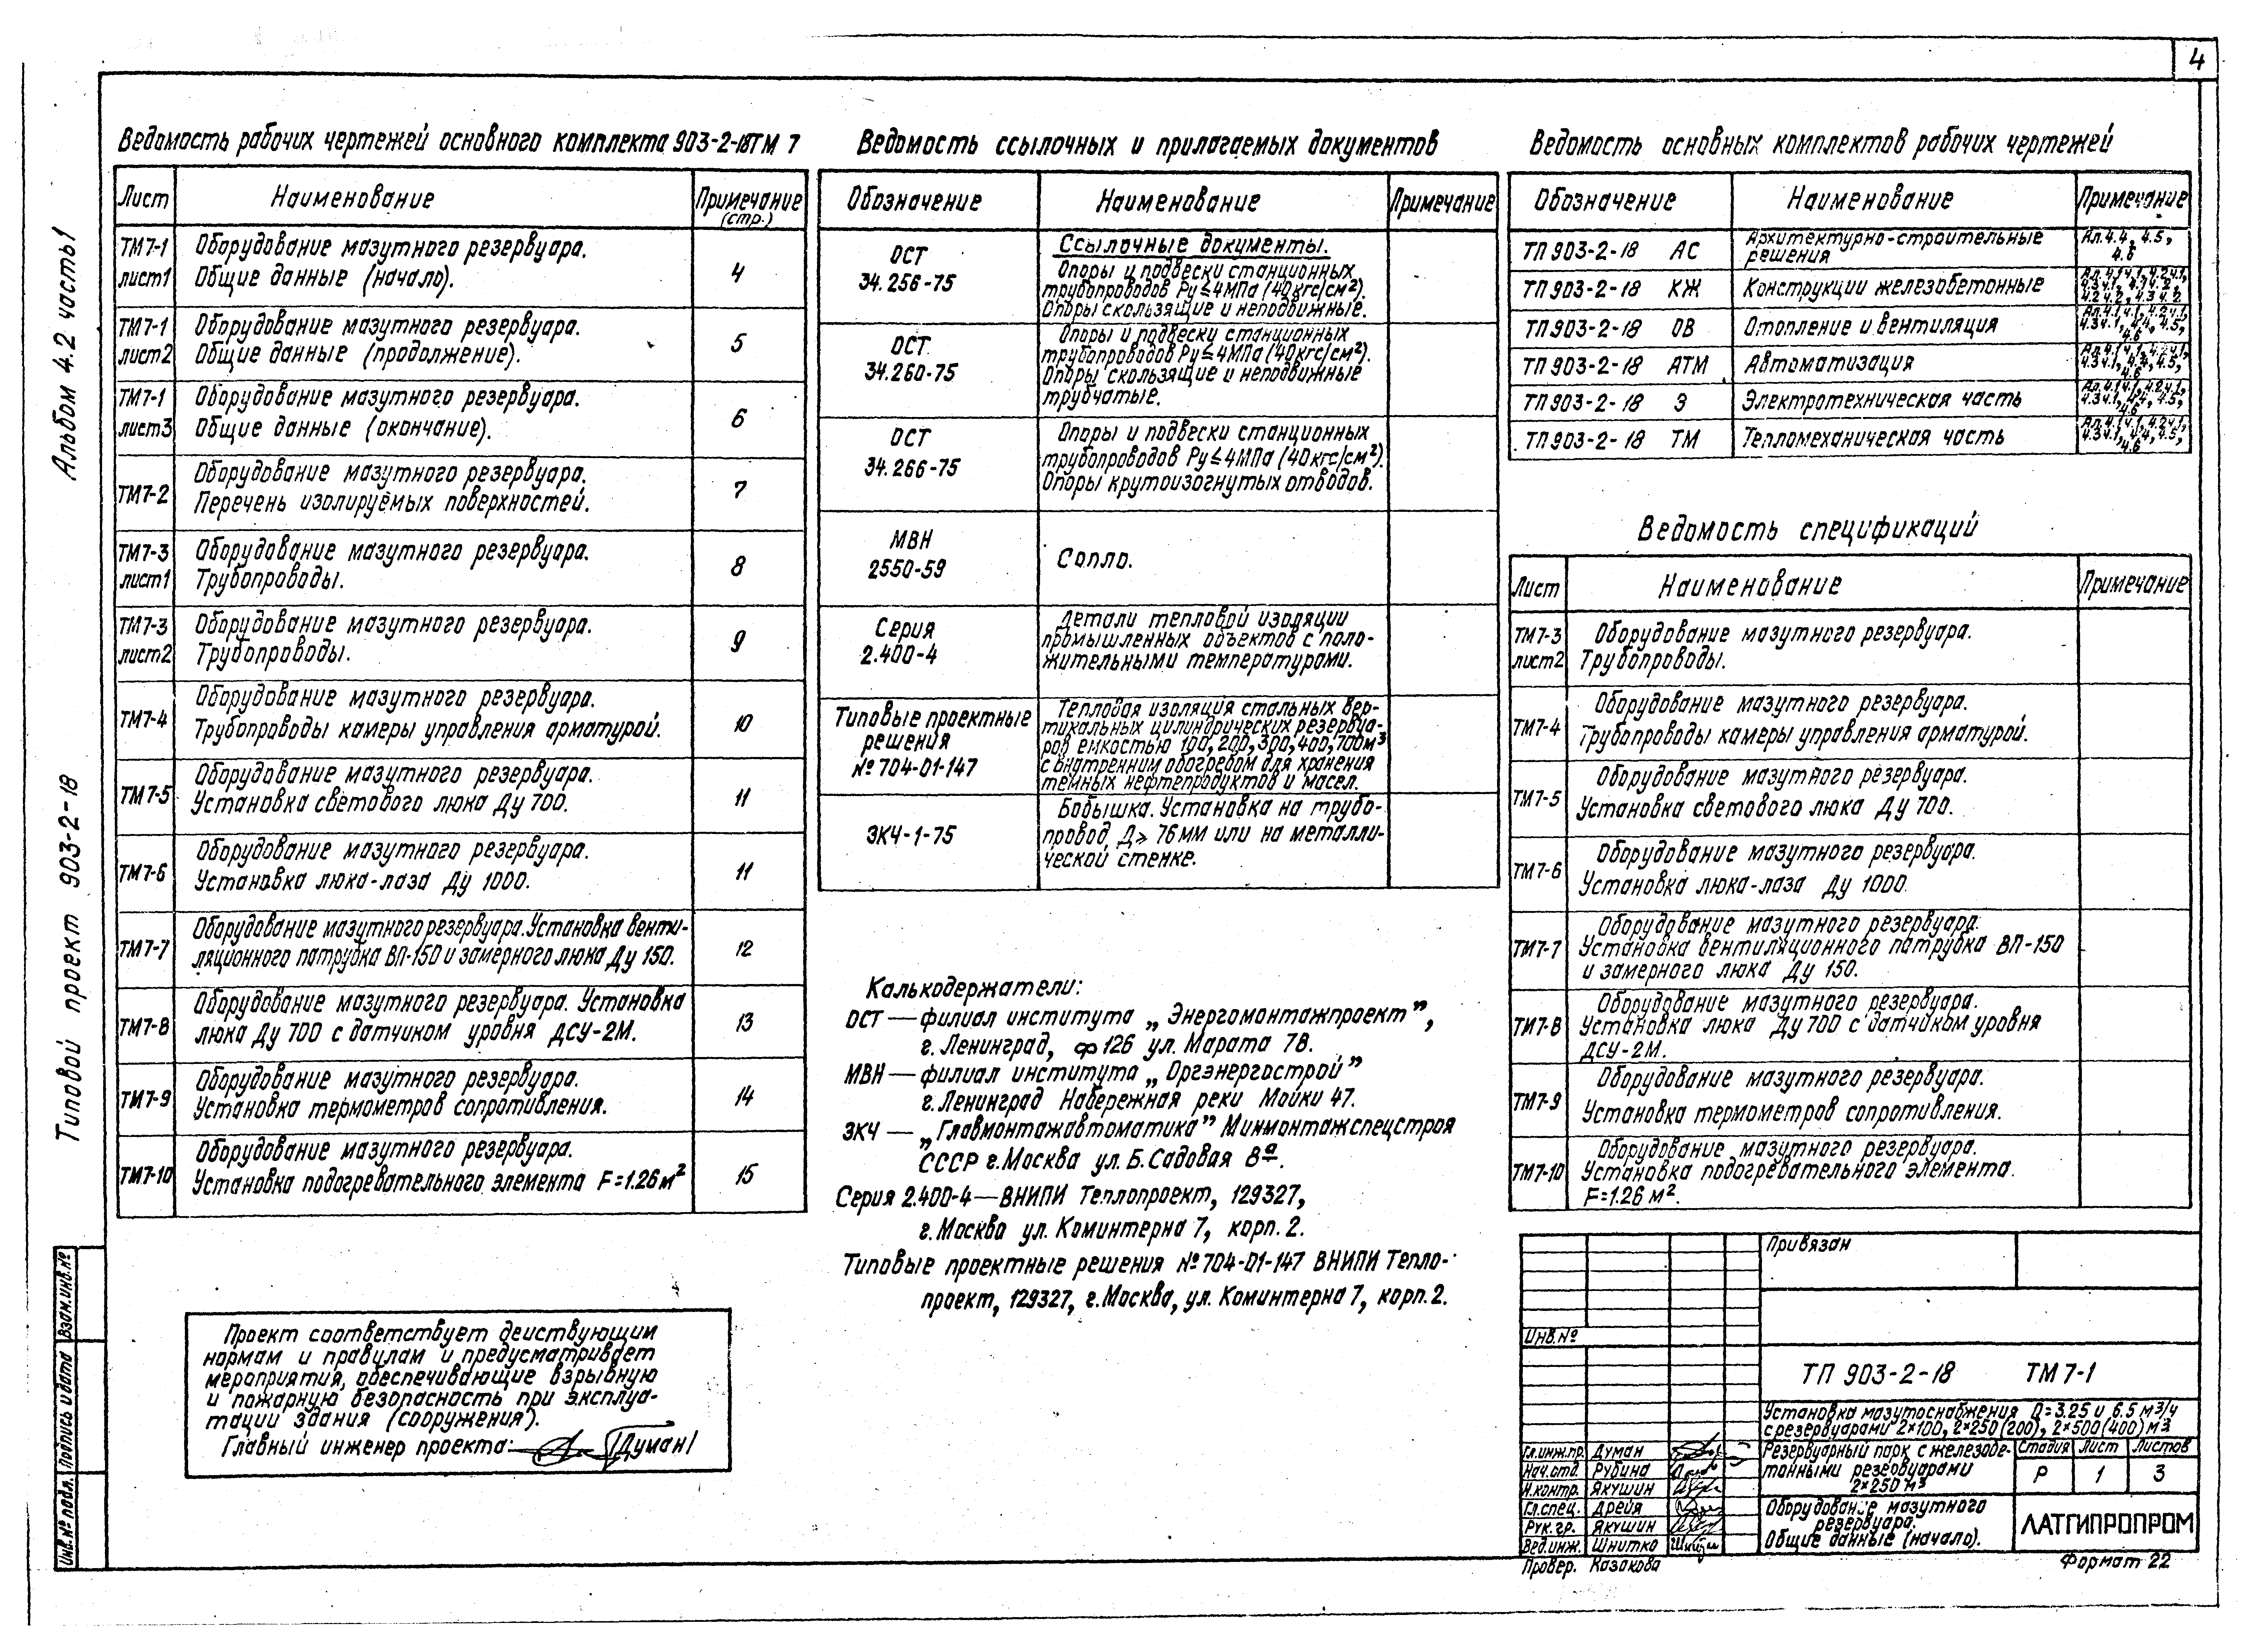 4
Альбом 4.2 часть 1
Типовой проект 903-2-18
Ведомость рабочих чертежей основного комплекта 903-2-18ТМ 7
Лист
Наименование
Примечание
(стр.)
ТМ7-1
лист1
Оборудование мазутного резервуара.
Общие данные (начало).
4
ТМ7-1
лист2
Оборудование мазутного резервуара.
Общие данные (продолжение).
5
ТМ7-1
лист3
Оборудование мазутного резервуара.
Общие данные (окончание).
6
ТМ7-2
Оборудование мазутного резервуара.
Перечень изолируемых поверхностей.
7
ТМ7-3
лист1
Оборудование мазутного резервуара.
Трубопроводы.
8
ТМ7-3
лист2
Оборудование мазутного резервуара.
Трубопроводы.
9
ТМ7-4
Оборудование мазутного резервуара.
Трубопроводы камеры управления арматурой.
10
ТМ7-5
Оборудование мазутного резервуара.
Установка светового люка Ду 700.
11
ТМ7-6
Оборудование мазутного резервуара.
Установка люка-лаза Ду 1000.
11
ТМ7-7
Оборудование мазутного резервуара. Установка венти-
ляционного патрубка ВП-150 и замерного люка Ду 150.
12
ТМ7-8
Оборудование мазутного резервуара. Установка
люка Ду 700 с датчиком уровня ДСУ-2М.
13
ТМ7-9
Оборудование мазутного резервуара.
Установка термометров сопротивления.
14
ТМ7-10
Оборудование мазутного резервуара.
Установка подогревательного элемента F=1.26м²
15
Проект соответствует действующим
нормам и правилам и предусматривает
мероприятия, обеспечивающие взрывную
и пожарную безопасность при эксплуа-
тации здания (сооружения).
Главный инженер проекта: /Думан/
Ведомость ссылочных и прилагаемых документов
Обозначение
Наименование
Примечание
Ссылочные документы.
ОСТ
34.256-75
Опоры и подвески станционных
трубопроводов Ру≤4МПа (40кгс/см²).
Опоры скользящие и неподвижные.
ОСТ
34.260-75
Опоры и подвески станционных
трубопроводов Ру≤4МПа (40кгс/см²).
Опоры скользящие и неподвижные
трубчатые.
ОСТ
34.266-75
Опоры и подвески станционных
трубопроводов Ру≤4МПа (40кгс/см²).
Опоры крутоизогнутых отводов.
МВН
2550-59
Сопло.
Серия
2.400-4
Детали тепловой изоляции
промышленных объектов с поло-
жительными температурами.
Типовые проектные
решения
№704-01-147
Тепловая изоляция стальных вер-
тикальных цилиндрических резервуа-
ров емкостью 100, 200, 300, 400, 700м³
с внутренним обогревом для хранения
темных нефтепродуктов и масел.
ЗКЧ-1-75
Бобышка. Установка на трубо-
провод Д≥76мм или на металли-
ческой стенке.
Калькодержатели:
ОСТ — филиал института „Энергомонтажпроект”,
г. Ленинград, ф 126 ул. Марата 78.
МВН — филиал института „Оргэнергострой”
г. Ленинград Набережная реки Мойки 47.
ЗКЧ — „Главмонтажавтоматика” Минмонтажспецстроя
СССР г. Москва ул. Б. Садовая 8а.
Серия 2.400-4 — ВНИПИ Теплопроект, 129327,
г. Москва ул. Коминтерна 7, корп. 2.
Типовые проектные решения №704-01-147 ВНИПИ Тепло-
проект, 129327, г. Москва, ул. Коминтерна 7, корп. 2.
Ведомость основных комплектов рабочих чертежей
Обозначение
Наименование
Примечание
ТП 903-2-18 АС
Архитектурно-строительные
решения
Ал. 4.4, 4.5,
4.6
ТП 903-2-18 КЖ
Конструкции железобетонные
ТП 903-2-18 ОВ
Отопление и вентиляция
Ал. 4.1ч.1, 4.2ч.1,
4.3ч.1, 4.4, 4.5,
4.6
ТП 903-2-18 АТМ
Автоматизация
Ал. 4.1ч.1, 4.2ч.1,
4.3ч.1, 4.4, 4.5,
4.6
ТП 903-2-18 Э
Электротехническая часть
Ал. 4.1ч.1, 4.2ч.1,
4.3ч.1, 4.4, 4.5,
4.6
ТП 903-2-18 ТМ
Тепломеханическая часть
Ал. 4.1ч.1, 4.2ч.1,
4.3ч.1, 4.4, 4.5,
4.6
Ведомость спецификаций
Лист
Наименование
Примечание
ТМ7-3
лист2
Оборудование мазутного резервуара.
Трубопроводы.
ТМ7-4
Оборудование мазутного резервуара.
Трубопроводы камеры управления арматурой.
ТМ7-5
Оборудование мазутного резервуара.
Установка светового люка Ду 700.
ТМ7-6
Оборудование мазутного резервуара.
Установка люка-лаза Ду 1000.
ТМ7-7
Оборудование мазутного резервуара.
Установка вентиляционного патрубка ВП-150
и замерного люка Ду 150.
ТМ7-8
Оборудование мазутного резервуара.
Установка люка Ду 700 с датчиком уровня
ДСУ-2М.
ТМ7-9
Оборудование мазутного резервуара.
Установка термометров сопротивления.
ТМ7-10
Оборудование мазутного резервуара.
Установка подогревательного элемента.
F=1.26 м².
Привязан
Инв.№
ТП 903-2-18 ТМ 7-1
Установка мазутоснабжения Q=3.25 и 6.5 м³/ч
с резервуарами 2×100, 2×250(200), 2×500(400)м3
Гл.инж.пр. Думан
Нач.отд. Рубина
Н.контр. Якушин
Гл.спец. Дрейя
Рук.гр. Якушин
Вед.инж. Шнитко
Провер. Казакова
Резервуарный парк с железобе-
тонными резервуарами
2×250 м³
Стадия Лист Листов
Р 1 3
Оборудование мазутного
резервуара.
Общие данные (начало).
ЛАТГИПРОПРОМ
Формат 22
Взам.инв.№
Подпись и дата
Инв.№ подл.